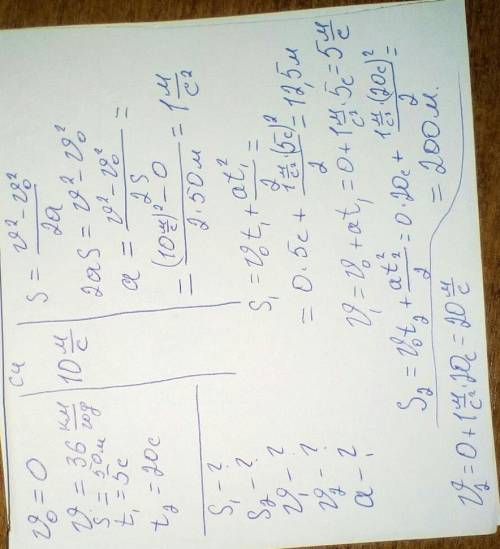 υ₀ = 0
υ = 36 км/год
S = 50м
t₁ = 5с
t₂ = 20с
S₁ - ?
S₂ - ?
υ₁ - ?
υ₂ - ?
a - ?
си
10 м/с
S = (υ² - υ₀²)/2a
2aS = υ² - υ₀²
a = (υ² - υ₀²)/2S =
= ((10 м/с)² - 0)/(2·50м) = 1 м/с²
S₁ = υ₀t₁ + at₁²/2 =
= 0·5с + (1 м/с²·(5с)²)/2 = 12,5м
υ₁ = υ₀ + at₁ = 0 + 1 м/с²·5с = 5 м/с
S₂ = υ₀t₂ + at₂²/2 = 0·20с + (1 м/с²·(20с)²)/2 =
= 200м.
υ₂ = 0 + 1 м/с²·20с = 20 м/с